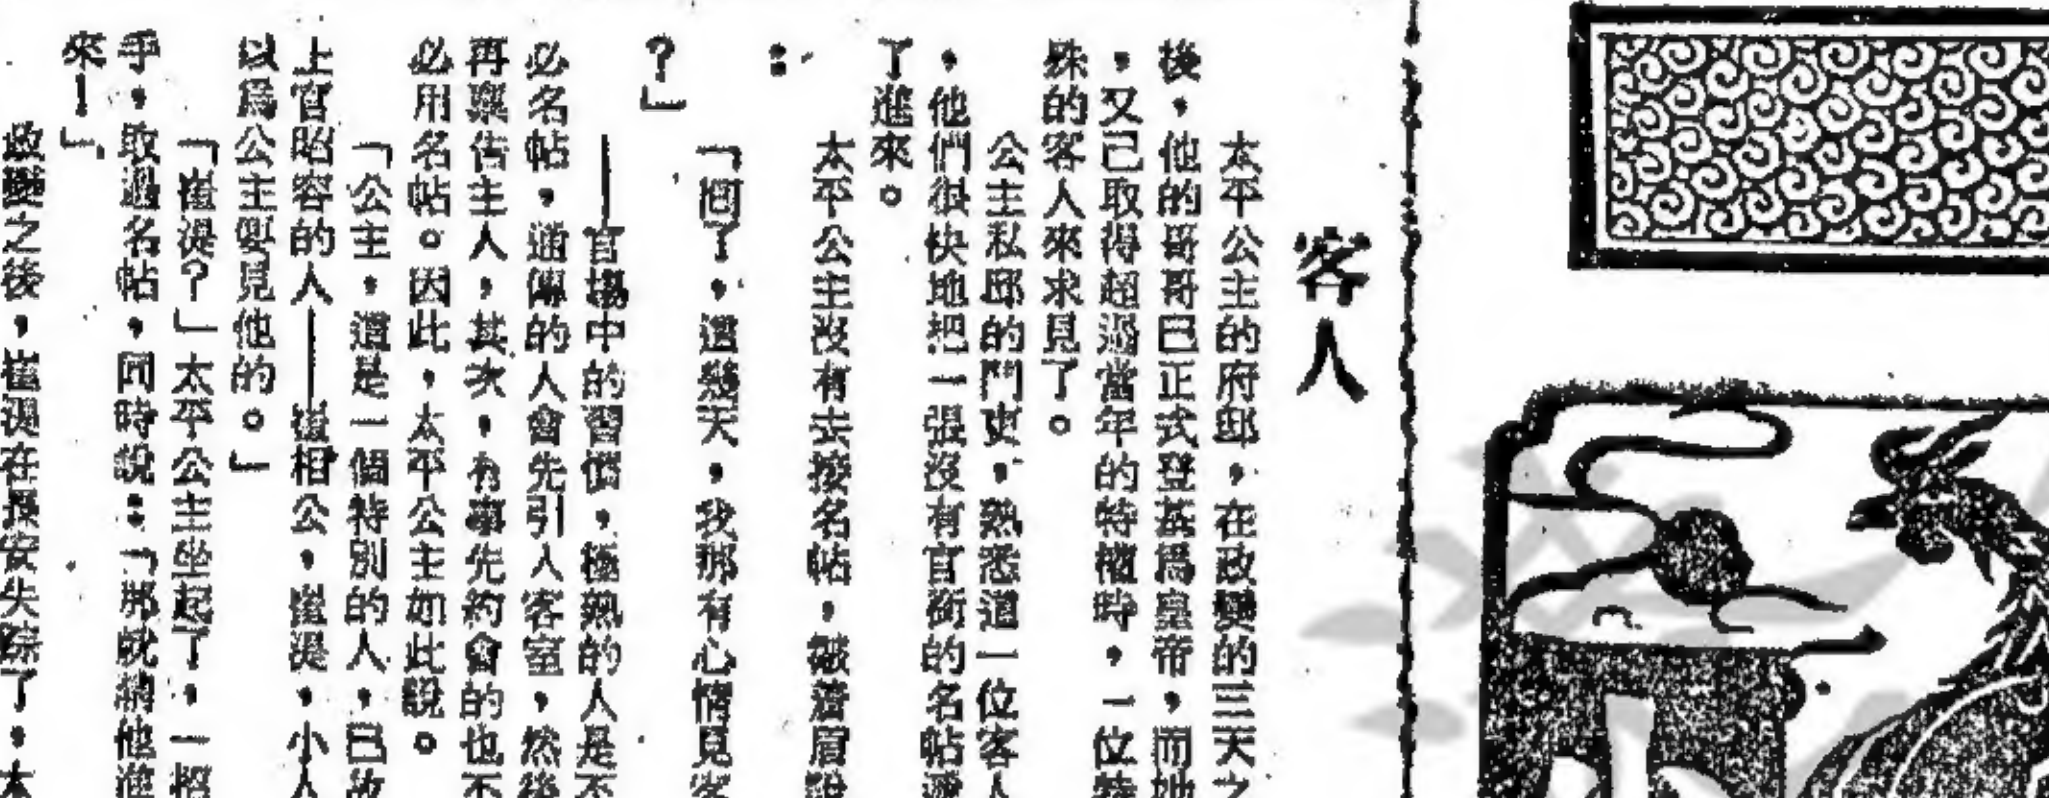 客人
太平公主的府邸，在政變的三天之
後，他的哥哥已正式登基爲皇帝，而她
，又已取得超過當年的特權時，一位特
殊的客人來求見了。
公主私邸的門吏，熟悉這一位客人
，他們很快地把一張沒有官銜的名帖遞
了進來。
太平公主沒有去接名帖，皺着眉說
：
「回了，這幾天，我那有心情見客
？」
——官場中的習慣，極熟的人是不
必名帖，通傳的人會先引入客室，然後
再稟告主人，其次，有事先約會的也不
必用名帖。因此，太平公主如此說。
「公主，這是一個特別的人，已故
上官昭容的人——崔相公，崔湜，小人
以爲公主要見他的。」
「崔湜？」太平公主坐起了，一招
手，取過名帖，同時說：「那就請他進
來！」
政變之後，崔湜在長安失踪了，太